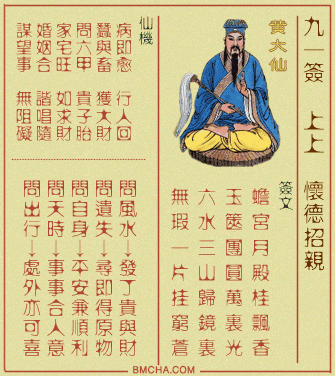 九一簽 上上 懷德招親
黃大仙
簽文
蟾宮月殿桂飄香
玉篋團圓萬裏光
六水三山歸鏡裏
無瑕一片挂窮蒼
仙機
病即愈 行人回
蠶與畜 獲大財
問六甲 貴子胎
家宅旺 如求財
婚姻合 諧唱隨
謀望事 無阻礙
問風水→發丁貴與財
問遺失→尋即得原物
問自身→平安兼順利
問天時→事事合人意
問出行→處外亦可喜
BMCHA.COM